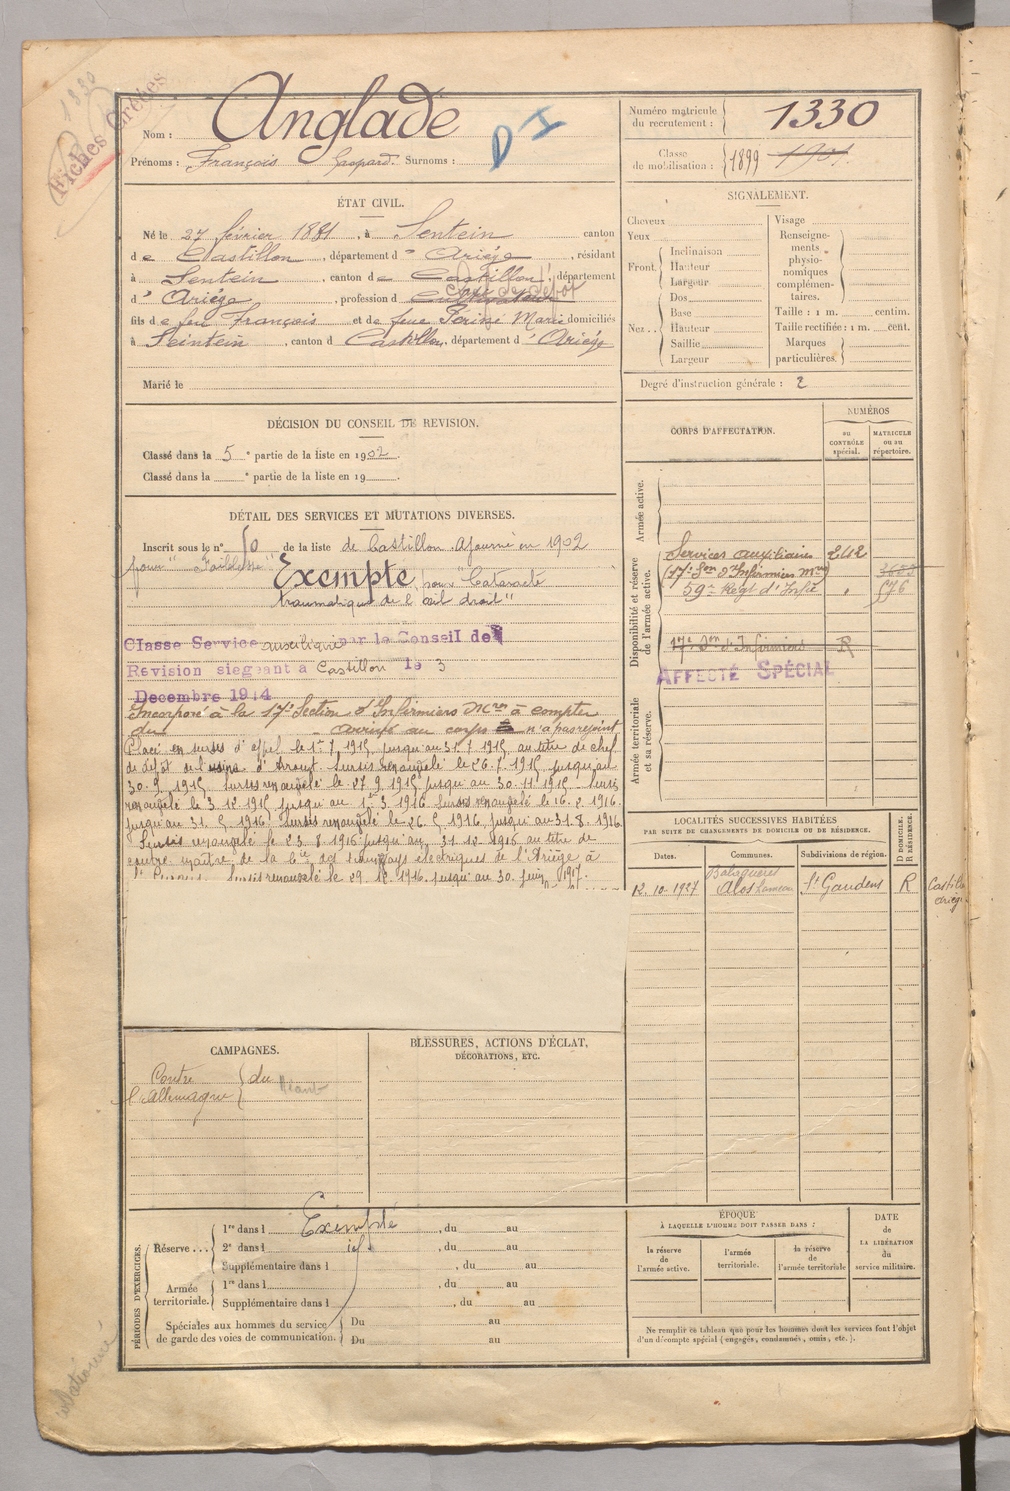 1330
Fiches Créées
Nom : Anglade
D I
Prénoms : François Gaspard. Surnoms :
Numéro matricule du recrutement : 1330
Classe de mobilisation : 1899 1901.
ÉTAT CIVIL.
Né le 27 février 1881, à Sentein canton
de Castillon, département d' Ariége, résidant
à Sentein, canton de Castillon, département
d' Ariége, profession de cultivateur chef de dépôt
fils de feu François et de feue Périne Marie domiciliés
à Seintein, canton d Castillon, département d' Ariége
Marié le
SIGNALEMENT.
Cheveux
Yeux
Front. Inclinaison
Hauteur
Largeur
Nez . . Dos
Base
Hauteur
Saillie
Largeur
Visage
Renseignements physionomiques complémentaires.
Taille : 1 m. centim.
Taille rectifiée : 1 m. cent.
Marques particulières.
Degré d'instruction générale : 2
DÉCISION DU CONSEIL DE REVISION.
Classé dans la 5e partie de la liste en 1902.
Classé dans la e partie de la liste en 19 .
DÉTAIL DES SERVICES ET MUTATIONS DIVERSES.
Inscrit sous le n° 50 de la liste de Castillon. Ajourné en 1902
pour "Faiblesse" Exempté pour "Cataracte
traumatique de l'œil droit"
Classe Service auxiliaire par le Conseil de
Revision siegeant à Castillon le 3
Decembre 1914
Incorporé à la 17e Section d'Infirmiers Mres à compter
du arrivé au corps n'a pas rejoint
Placé en sursis d'appel le 1er 7 1915 jusqu'au 31.7.1915 au titre de chef
de dépôt de l'usine d' Sursis renouvelé le 26.7.1915 jusqu'au
30.9.1915 Sursis renouvelé le 27.9.1915 jusqu'au 30.11.1915 Sursis
renouvelé le 3.12.1915 jusqu'au 1er 3.1916 Sursis renouvelé le 16.2.1916.
jusqu'au 31.5.1916. Sursis renouvelé le 26.5.1916 jusqu'au 31.8.1916.
Sursis renouvelé le 23.8.1916 jusqu'au 31.12.1916 au titre de
contre maître de la Cie des tramways électriques de l'Ariége à
Sursis renouvelé le 29.12.1916. jusqu'au 30 juin 1917.
CORPS D'AFFECTATION.
NUMÉROS
au CONTRÔLE spécial.
MATRICULE ou au répertoire.
Armée active.
Disponibilité et réserve de l'armée active.
Services auxiliaires
17e Son d'Infirmiers Mres 3683
59e Régt d'Infie 576
17e Son d'Infirmiers R
AFFECTÉ SPÉCIAL
Armée territoriale et sa réserve.
LOCALITÉS SUCCESSIVES HABITÉES
PAR SUITE DE CHANGEMENTS DE DOMICILE OU DE RÉSIDENCE.
D DOMICILE. R RÉSIDENCE.
Dates. Communes. Subdivisions de région.
12.10.1927 Alos St Gaudens R
CAMPAGNES.
Contre l'Allemagne du Néant
BLESSURES, ACTIONS D'ÉCLAT,
DÉCORATIONS, ETC.
PÉRIODES D'EXERCICES.
Réserve . . . 1re dans l Exempté, du au
2e dans l , du au
Supplémentaire dans l , du au
Armée territoriale. 1re dans l , du au
Supplémentaire dans l , du au
Spéciales aux hommes du service de garde des voies de communication. Du au
Du au
ÉPOQUE
À LAQUELLE L'HOMME DOIT PASSER DANS :
la réserve de l'armée active.
l'armée territoriale.
la réserve de l'armée territoriale
DATE de LA LIBÉRATION du service militaire.
Ne remplir ce tableau que pour les hommes dont les services font l'objet
d'un décompte spécial (engagés, condamnés, omis, etc.).